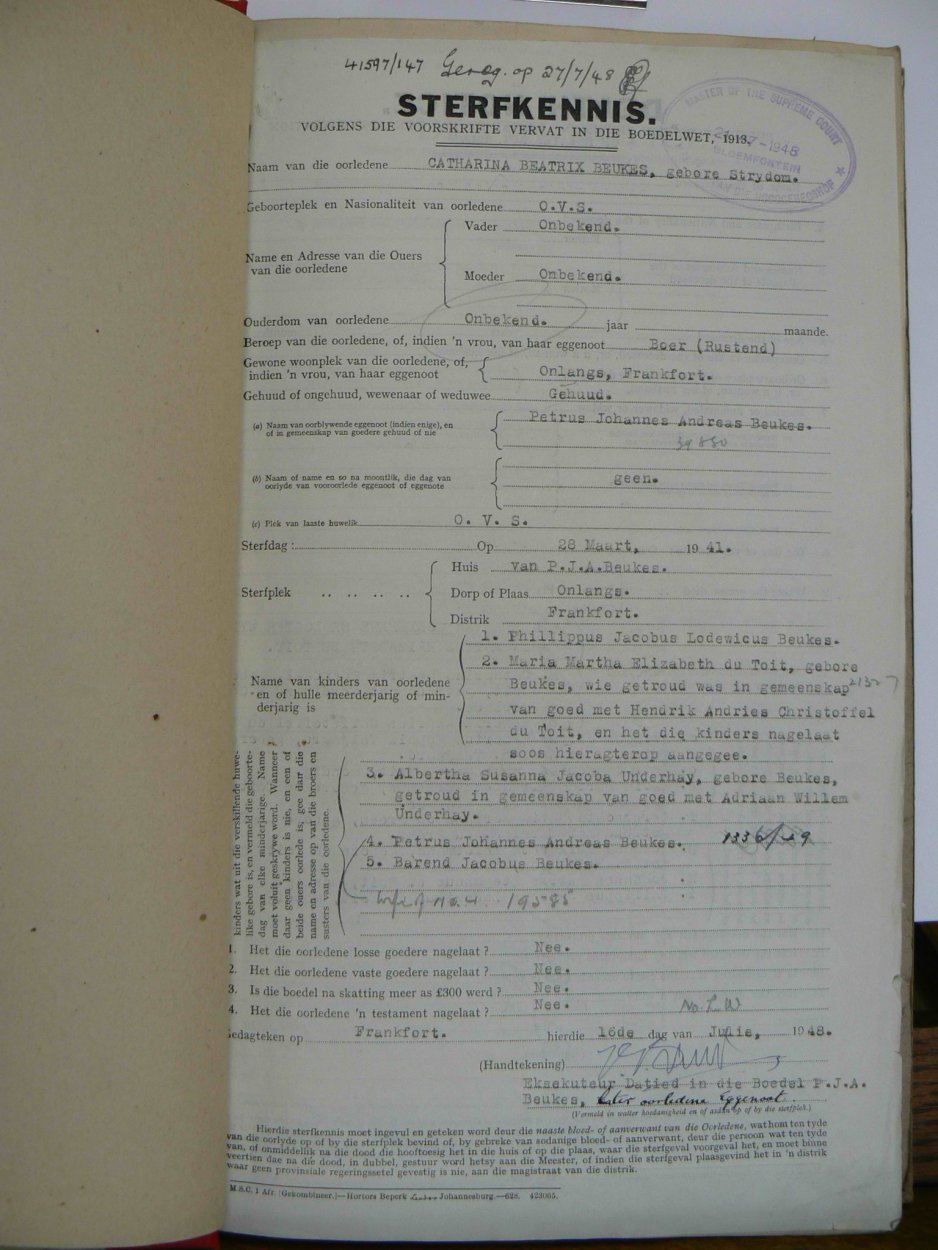 41597/147 Gereg. op 27/7/48
STERFKENNIS.
VOLGENS DIE VOORSKRIFTE VERVAT IN DIE BOEDELWET, 1913.
MASTER OF THE SUPREME COURT
-7-1948
BLOEMFONTEIN
HOOGGEREGSHOF
Naam van die oorledene CATHARINA BEATRIX BEUKES, gebore Strydom.
Geboorteplek en Nasionaliteit van oorledene O.V.S.
Name en Adresse van die Ouers van die oorledene
Vader Onbekend.
Moeder Onbekend.
Ouderdom van oorledene Onbekend. jaar maande.
Beroep van die oorledene, of, indien 'n vrou, van haar eggenoot Boer (Rustend)
Gewone woonplek van die oorledene, of,
indien 'n vrou, van haar eggenoot Onlangs, Frankfort.
Gehuud of ongehuud, wewenaar of weduwee Gehuud.
(a) Naam van oorblywende eggenoot (indien enige), en
of in gemeenskap van goedere gehuud of nie
Petrus Johannes Andreas Beukes.
39880
(b) Naam of name en so na moontlik, die dag van
oorlyde van vooroorlede eggenoot of eggenote
geen.
(c) Plek van laaste huwelik O. V. S.
Sterfdag : Op 28 Maart, 1941.
Sterfplek .. .. .. ..
Huis van P.J.A.Beukes.
Dorp of Plaas Onlangs.
Distrik Frankfort.
Name van kinders van oorledene
en of hulle meerderjarig of min-
derjarig is
1. Phillippus Jacobus Lodewicus Beukes.
2. Maria Martha Elizabeth du Toit, gebore
Beukes, wie getroud was in gemeenskap
van goed met Hendrik Andries Christoffel
du Toit, en het die kinders nagelaat
soos hieragterop aangegee.
kinders wat uit die verskillende huwe-
like gebore is, en vermeld die geboorte-
dag van elke minderjarige. Name
moet voluit geskrywe word. Wanneer
daar geen kinders is nie, en een of
beide ouers oorlede is, gee dan die
name en adresse op van die broers en
susters van die oorledene.
3. Albertha Susanna Jacoba Underhay, gebore Beukes,
getroud in gemeenskap van goed met Adriaan Willem
Underhay.
4. Petrus Johannes Andreas Beukes.
5. Barend Jacobus Beukes.
wife of no. 4 19585
1. Het die oorledene losse goedere nagelaat ? Nee.
2. Het die oorledene vaste goedere nagelaat ? Nee.
3. Is die boedel na skatting meer as £300 werd ? Nee.
4. Het die oorledene 'n testament nagelaat ? Nee.
No. L W
Gedagteken op Frankfort. hierdie 16de dag van Julie, 1948.
(Handtekening)
Eksekuteur Datied in die Boedel P.J.A.
Beukes, later oorledene Eggenoot.
(Vermeld in watter hoedanigheid en of aldan op of by die sterfplek.)
Hierdie sterfkennis moet ingevul en geteken word deur die naaste bloed- of aanverwant van die Oorledene, wat hom ten tyde
van die oorlyde op of by die sterfplek bevind of, by gebreke van sodanige bloed- of aanverwant, deur die persoon wat ten tyde
van, of onmiddellik na die dood die hooftoesig het in die huis of op die plaas, waar die sterfgeval voorgeval het, en moet binne
veertien dae na die dood, in dubbel, gestuur word hetsy aan die Meester, of indien die sterfgeval plaasgevind het in 'n distrik
waar geen provinsiale regeringssetel gevestig is nie, aan die magistraat van die distrik.
M.S.C. 1 Afr. [Gekombineer.]—Hortors Beperk Johannesburg.—628. 423065.